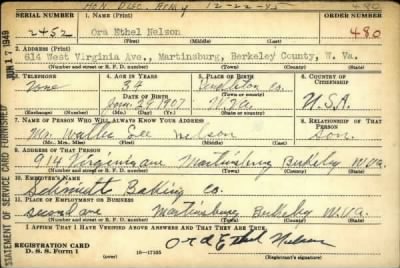 Hon Disc. Army 12-22-45 480
SERIAL NUMBER 1. NAME (Print) ORDER NUMBER
2452 Ora Ethel Nelson 480
2. ADDRESS (Print)
614 West Virginia Ave., Martinsburg, Berkeley County, W. Va.
(Number and street or R. F. D. number) (Town) (County) (State)
3. TELEPHONE 4. AGE IN YEARS 5. PLACE OF BIRTH 6. COUNTRY OF CITIZENSHIP
None 34 Pendleton co.
DATE OF BIRTH (Town or county)
1907 W. Va U.S.A.
(Exchange) (Number) (Mo.) (Day) (Yr.) (State or country)
7. NAME OF PERSON WHO WILL ALWAYS KNOW YOUR ADDRESS 8. RELATIONSHIP OF THAT PERSON
Mr. Walter Lee Nelson Son.
(Mr., Mrs., Miss) (First) (Middle) (Last)
9. ADDRESS OF THAT PERSON
914 Virginia ave Martinsburg Berkeley W.Va.
(Number and street or R. F. D. number) (Town) (County) (State)
10. EMPLOYER'S NAME
Schmidt Baking Co.
11. PLACE OF EMPLOYMENT OR BUSINESS
second ave Martinsburg Berkeley W.Va
(Number and street or R. F. D. number) (Town) (County) (State)
I AFFIRM THAT I HAVE VERIFIED ABOVE ANSWERS AND THAT THEY ARE TRUE.
REGISTRATION CARD
D. S. S. Form 1 16-17105 Ora Ethel Nelson
STATEMENT OF SERVICE CARD FURNISHED JUN 17 1949